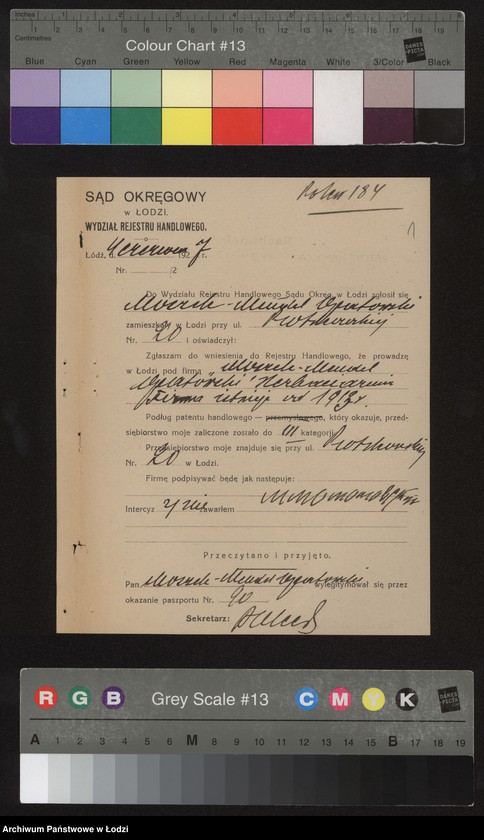 Inches 1 2 3 4 5 6 7 8
Centimetres 1 2 3 4 5 6 7 8 9 10 11 12 13 14 15 16 17 18 19
Colour Chart #13
DANES PICTA
Blue Cyan Green Yellow Red Magenta White 3/Color Black
SĄD OKRĘGOWY
w ŁODZI.
WYDZIAŁ REJESTRU HANDLOWEGO.
184
Łódź, d. 4 czerwca 1927 r.
Nr. /2
Do Wydziału Rejestru Handlowego Sądu Okręg. w Łodzi zgłosił się
Moszek-Mendel Opatowski
zamieszkały w Łodzi przy ul. Piotrkowskiej
Nr. 20 i oświadczył:
Zgłaszam do wniesienia do Rejestru Handlowego, że prowadzę
w Łodzi pod firmą „Moszek-Mendel
Opatowski" Herbaciarnia
Firma istnieje od 191 r.
Podług patentu handlowego — przemysłowego, który okazuje, przed-
siębiorstwo moje zaliczone zostało do III kategorji.
Przedsiębiorstwo moje znajduje się przy ul. Piotrkowskiej
Nr. 20 w Łodzi.
Firmę podpisywać będę jak następuje:
Intercyz nie zawarłem
Przeczytano i przyjęto.
Pan Moszek-Mendel Opatowski wylegitymował się przez
okazanie paszportu Nr. 90
Sekretarz:
R G B Grey Scale #13 C M Y K
DANES PICTA
A 1 2 3 4 5 6 M 8 9 10 11 12 13 14 15 B 17 18 19
Archiwum Państwowe w Łodzi